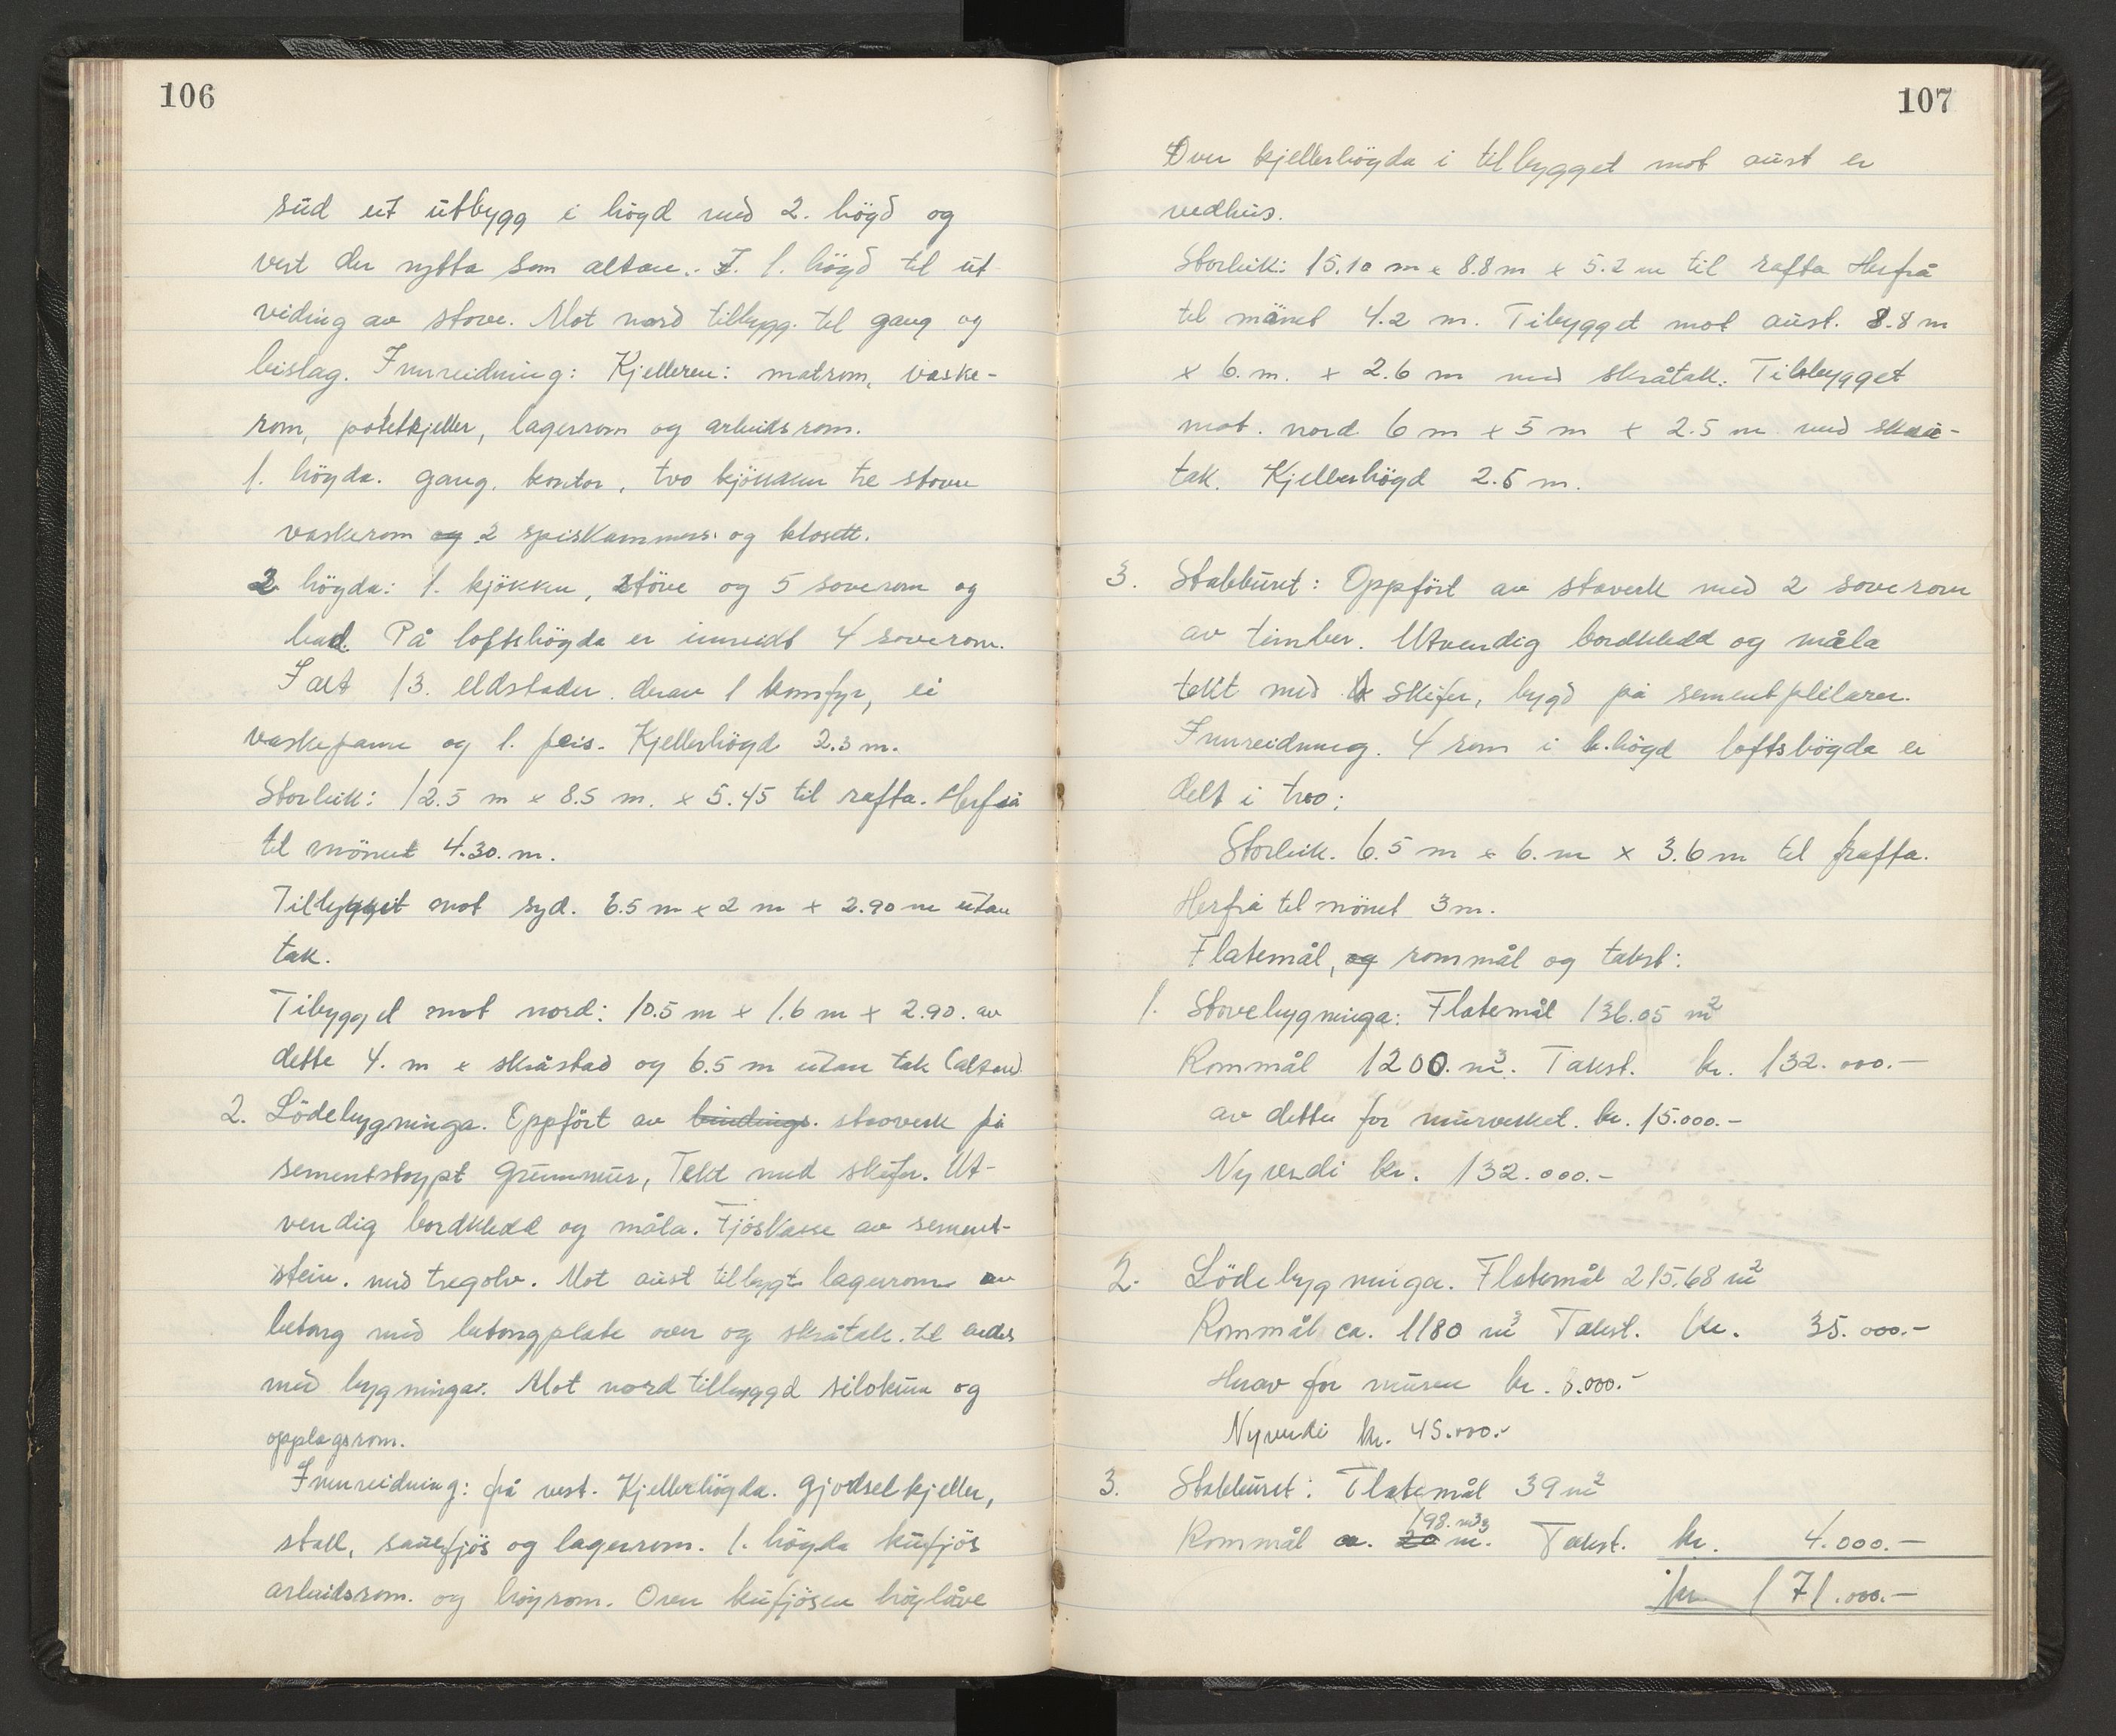 106
sud eit utbygg i högd med 2. högd og
vert der nytta som altan. I. 1. högd til ut
viding av stove. Mot nord tilbygg. til gang og
bislag. Innreidning: Kjelleren: matrom, vaske-
rom, potetkjeller, lagerrom og arbeidsrom.
1. högda. gang. kontor, tvo kjökken tre stover
vaskerom og 2 spiskammers. og klosett.
2 högda: 1. kjökken, stöve og 5 soverom og
bad. På loftshögda er innreidt 4 soverom.
I alt 13. eldstader. derav 1 komfyr, ei
vaskepanne og 1. peis. Kjellerhögd 2.3 m.
Storleik: 12.5 m x 8.5 m. x 5.45 til rafta. Herfrå
til mönet 4.30. m.
Tilbygget mot syd. 6.5 m x 2 m x 2.90 m utan
tak.
Tibygget mot nord: 10.5 m x 1.6 m x 2.90. av
dette 4. m x skråstad og 6.5 m utan tak (altan)
2. Lödebygninga. Oppfört av bindings. stavverk på
sementstøypt grunnmur, Tekt med skifer. Ut-
vendig bordkledd og måla. Fjöskasse av sement-
stein. med tregolv. Mot aust tilbygt lagerrom av
betong med betongplate over og skråtak. til endes
med bygninga. Mot nord tilbyggd silokum og
opplagsrom.
Innreidning: på vest. Kjellerhögda. gjødselkjeller,
stall, sauefjös og lagerrom. 1. högda kufjös
arbeidsrom. og høyrom. Over kufjösen høylåve
107
Over kjellerhögda i tilbygget mot aust er
vedhus.
Storleik: 15.10 m x 8.8 m x 5.2 m til rafta Herfrå
til mönet 4.2 m. Tibygget mot aust. 8.8 m
x 6. m. x 2.6 m med skråtak. Tilbygget
mot. nord 6 m x 5 m x 2.5 m med skrå-
tak. Kjellerhögd 2.5 m.
3. Stabburet: Oppfört av staverk med 2 soverom
av timber. Utvendig bordkledd og måla
tekt med skifer, bygd på sementpilarer.
Innreidning. 4 rom i 1. högd loftshögda er
delt i tvo;
Storleik. 6.5 m x 6. m x 3.6 m til rafta.
Herfrå til mönet 3 m.
Flatemål, og rommål og takst:
1. Stovebygninga: Flatemål 136.05 m²
Rommål 1200. m³. Takst. kr. 132.000.-
av dette for murverket. kr. 15.000.-
Nyverdi kr. 132.000.-
2. Lödebygninga. Flatemål 215.68 m²
Rommål ca. 1180 m³ Takst. kr. 35.000.-
Herav for muren kr. 8.000.-
Nyverdi kr. 45.000.-
3. Stabburet: Flatemål 39 m²
198. m³
Rommål ca. 20 m³. Takst. kr. 4.000.-
kr 171.000.-